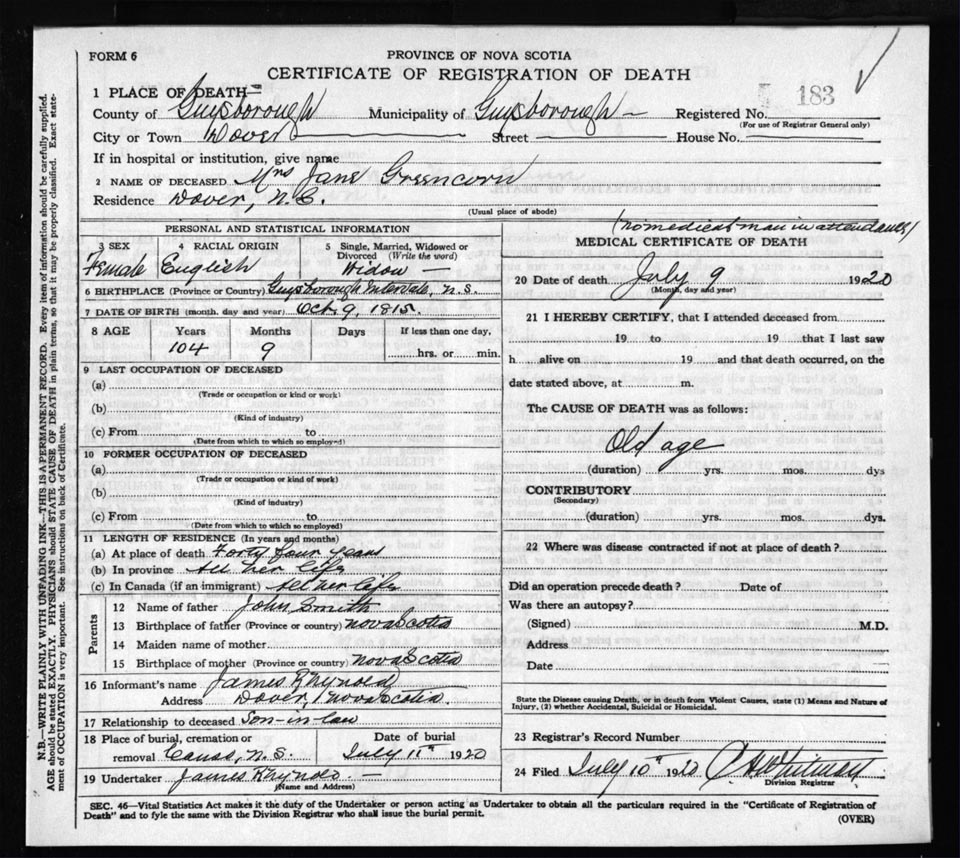 FORM 6
PROVINCE OF NOVA SCOTIA
CERTIFICATE OF REGISTRATION OF DEATH
1 PLACE OF DEATH—
183
County of Guysborough Municipality of Guysborough Registered No.
(For use of Registrar General only)
City or Town Dover Street House No.
If in hospital or institution, give name
2 NAME OF DECEASED Mrs Jane Greencorn
Residence Dover, N.S.
(Usual place of abode)
PERSONAL AND STATISTICAL INFORMATION
3 SEX 4 RACIAL ORIGIN 5 Single, Married, Widowed or
Divorced (Write the word)
Female English Widow
6 BIRTHPLACE (Province or Country) Guysborough Intervale, N.S.
7 DATE OF BIRTH (month, day and year) Oct. 9, 1815.
8 AGE Years Months Days If less than one day,
104 9 hrs. or min.
9 LAST OCCUPATION OF DECEASED
(a)
(Trade or occupation or kind or work)
(b)
(Kind of industry)
(c) From to
(Date from which to which so employed)
10 FORMER OCCUPATION OF DECEASED
(a)
(Trade or occupation or kind of work)
(b)
(Kind of industry)
(c) From to
(Date from which to which so employed)
11 LENGTH OF RESIDENCE (In years and months)
(a) At place of death Forty four years
(b) In province All her life
(c) In Canada (if an immigrant) All her life
Parents
12 Name of father John Smith
13 Birthplace of father (Province or country) Nova Scotia
14 Maiden name of mother
15 Birthplace of mother (Province or country) Nova Scotia
16 Informant's name James Rhynold
Address Dover, Nova Scotia.
17 Relationship to deceased Son-in-law
18 Place of burial, cremation or Date of burial
removal Canso, N.S. July 11th 1920
19 Undertaker James Rhynold
(Name and Address)
(no medical man in attendance)
MEDICAL CERTIFICATE OF DEATH
20 Date of death July 9 1920
(Month, day and year)
21 I HEREBY CERTIFY, that I attended deceased from
19 to 19 that I last saw
h alive on 19 and that death occurred, on the
date stated above, at m.
The CAUSE OF DEATH was as follows:
Old age
(duration) yrs. mos. dys
CONTRIBUTORY
(Secondary)
(duration) yrs. mos. dys.
22 Where was disease contracted if not at place of death?
Did an operation precede death? Date of
Was there an autopsy?
(Signed) M.D.
Address
Date
State the Disease causing Death, or in death from Violent Causes, state (1) Means and Nature of
Injury, (2) whether Accidental, Suicidal or Homicidal.
23 Registrar's Record Number
24 Filed July 10th 1920
Division Registrar
SEC. 46—Vital Statistics Act makes it the duty of the Undertaker or person acting as Undertaker to obtain all the particulars required in the "Certificate of Registration of
Death" and to fyle the same with the Division Registrar who shall issue the burial permit.
(OVER)
N.B.—WRITE PLAINLY WITH UNFADING INK—THIS IS A PERMANENT RECORD. Every item of information should be carefully supplied.
AGE should be stated EXACTLY. PHYSICIANS should STATE CAUSE OF DEATH in plain terms, so that it may be properly classified. Exact state-
ment of OCCUPATION is very important. See instructions on back of Certificate.